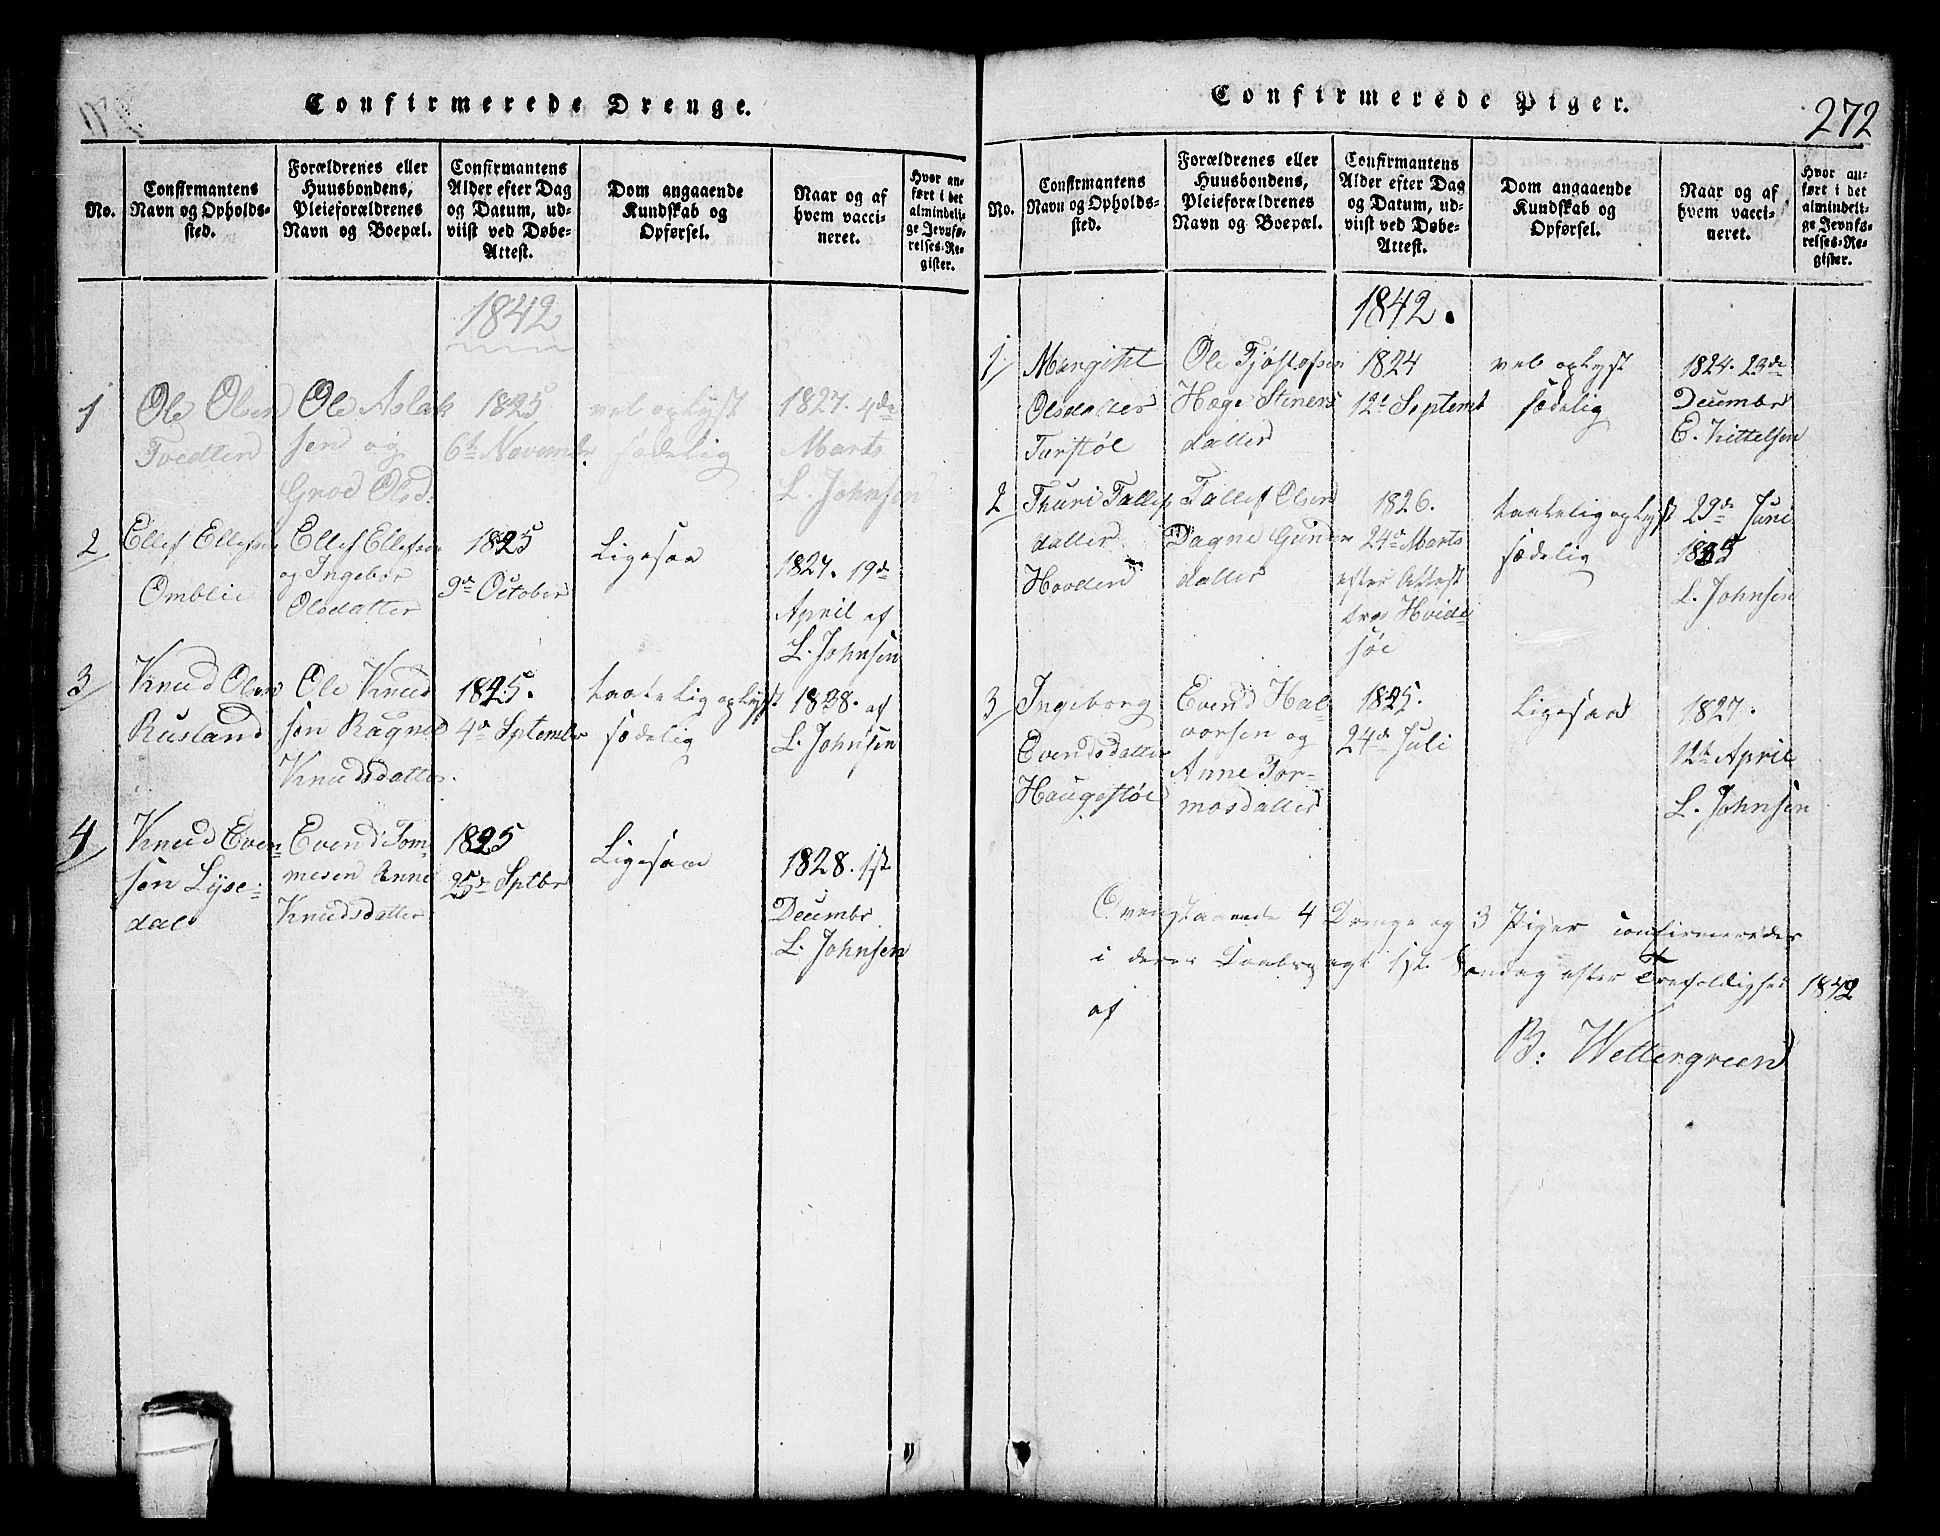 Confirmerede Drenge.
No.
Confirmantens
Navn og Opholds-
sted.
Forældrenes eller
Huusbondens,
Pleieforældrenes
Navn og Boepæl.
Confirmantens
Alder efter Dag
og Datum, ud-
viist ved Døbe-
Attest.
Dom angaaende
Kundskab og
Opførsel.
Naar og af
hvem vacci-
neret.
Hvor an-
ført i det
almindeli-
ge Jevnfø-
relses-Re-
gister.
1842
1
Ole Olsen
Tvedten
Ole Aslak
sen og
Groe Olsd.
1825
6te Novembr.
vel oplyst
sædelig
1827. 4de
Marts
L. Johnsen
2
Ellef Ellefsen
Omblie
Ellef Ellefsen
og Ingebor
Olsdatter
1825
9de October
Ligesaa
1827. 19de
April af
L. Johnsen
3
Knud Olsen
Rusland
Ole Knud
sen Ragnild
Knudsdatter.
1825.
4de Septembr
taatelig oplyst
sædelig
1828. af
L. Johnsen
4
Knud Even-
sen Lyse-
dal
Evend Tom-
mesen Anne
Knudsdatter
1825
25de Sptbr
Ligesaa
1828. 1ste
Decembr
L. Johnsen
Confirmerede Piger.
272
No.
Confirmantens
Navn og Opholds-
sted.
Forældrenes eller
Huusbondens,
Pleieforældrenes
Navn og Boepæl.
Confirmantens
Alder efter Dag
og Datum, ud-
viist ved Døbe-
Attest.
Dom angaaende
Kundskab og
Opførsel.
Naar og af
hvem vacci-
neret.
Hvor an-
ført i det
almindeli-
ge Jevnfø-
relses-Re-
gister.
1842.
1
Margitht
Olsdatter
Turstøl
Ole Tjøstofsen
Hæge Steners
datter
1824
12te Septemb
vel oplyst
sædelig
1824. 23de
Decembr
E. Kittelsen
2
Thuri Tallefs
datter
Hovden
Tallef Olsen
Dagne Gunder
datter
1826.
24de Marts
efter Attest
fra Hvide
søe
taatelig oplyst
sædelig
29de Juni
1835
L. Johnsen
3
Ingeborg
Evendsdatter
Haugestøl
Evend Hal-
vorsen og
Anne Tor-
mosdatter
1825.
24de Juli
Ligesaa
1827.
12te April
L. Johnsen
Ovenstaaende 4 Drenge og 3 Piger confirmeredes
i deres Daabspagt 1ste Søndag efter Trefoldighed 1842
af
B: Wettergreen